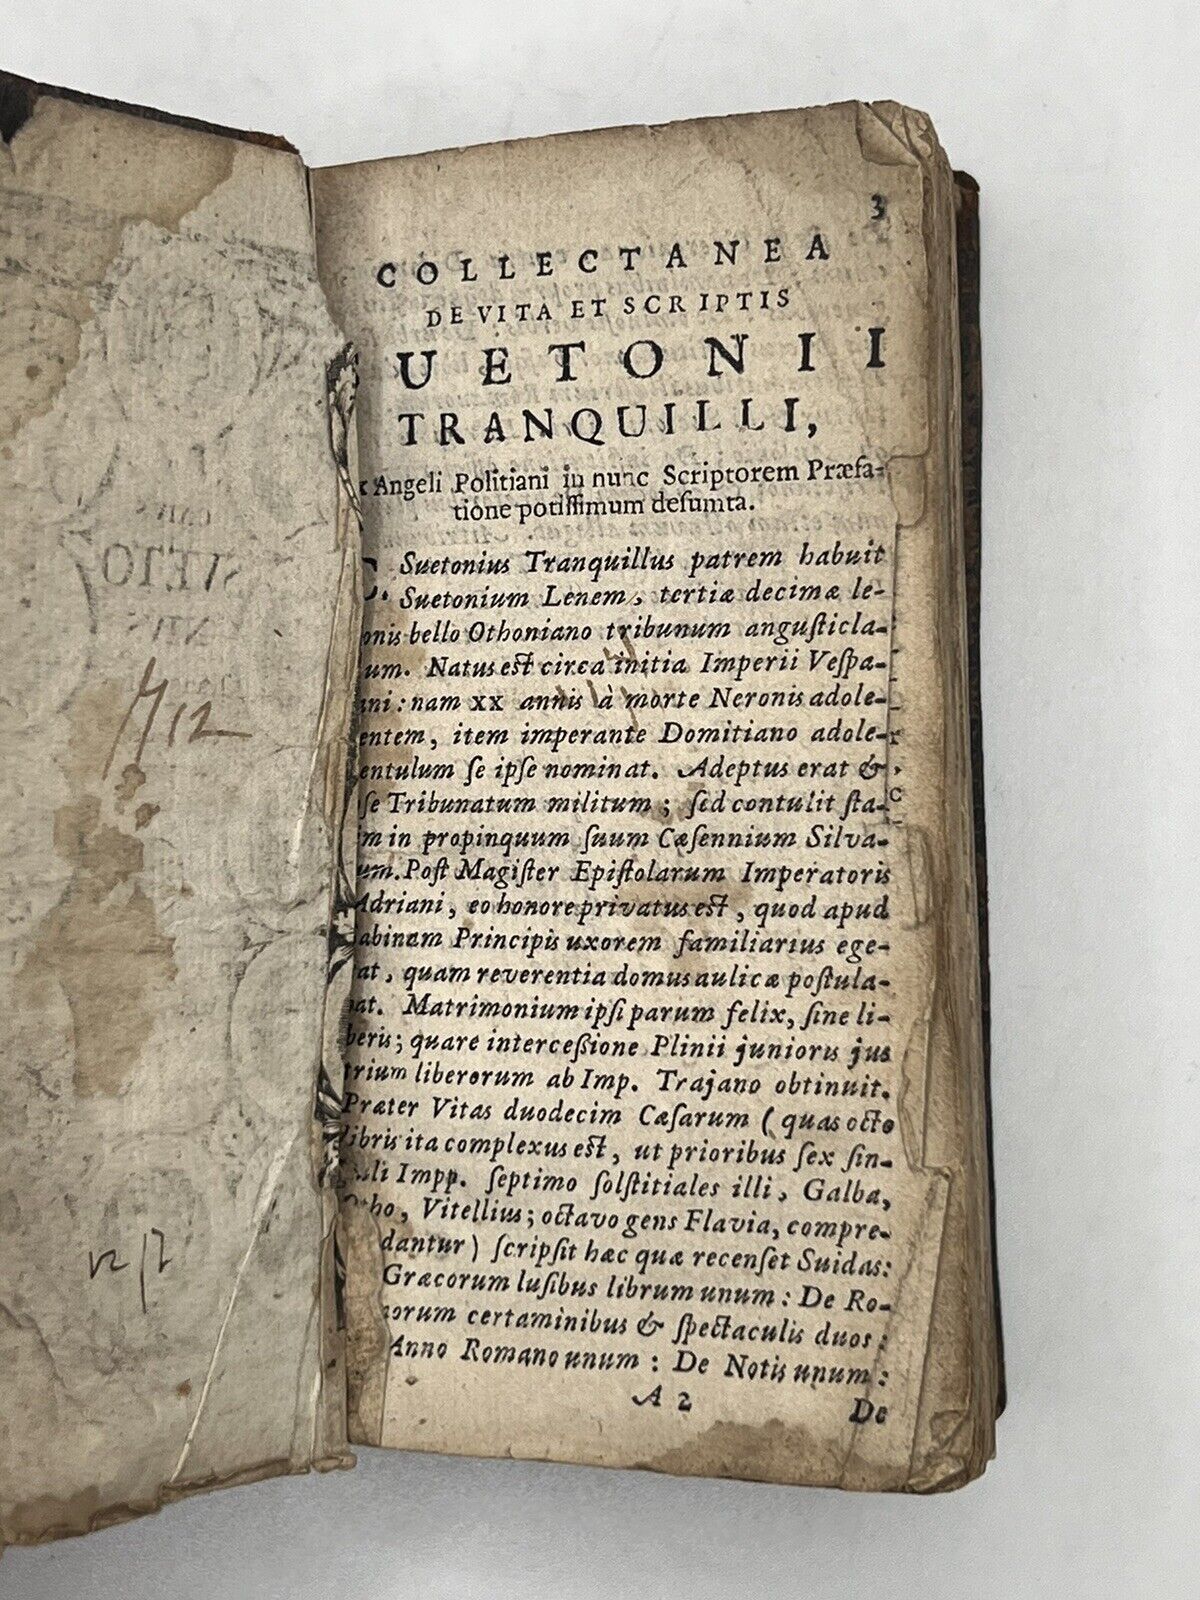 3
COLLECTANEA
DE VITA ET SCRIPTIS
UETONII
TRANQUILLI,
Angeli Politiani in nunc Scriptorem Præfa-
tione potiſſimum deſumta.
Suetonius Tranquillus patrem habuit
C. Suetonium Lenem, tertiæ decimæ le-
onis bello Othoniano tribunum anguſticla-
um. Natus est circa initia Imperii Veſpa-
ani: nam XX annis à morte Neronis adole-
entem, item imperante Domitiano adole-
entulum ſe ipſe nominat. Adeptus erat &
ſe Tribunatum militum; ſed contulit ſta-
im in propinquum ſuum Cæſennium Silva-
um. Poſt Magiſter Epiſtolarum Imperatoris
Adriani, eo honore privatus est, quod apud
abinam Principis uxorem familiarius ege-
at, quam reverentia domus aulicæ poſtula-
at. Matrimonium ipſi parum felix, ſine li-
beris; quare interceßione Plinii junioris jus
trium liberorum ab Imp. Trajano obtinuit.
Præter Vitas duodecim Cæſarum (quas octo
libris ita complexus est, ut prioribus ſex ſin-
uli Impp. ſeptimo ſolſtitiales illi, Galba,
Otho, Vitellius; octavo gens Flavia, compre
dantur) ſcripſit hæc quæ recenſet Suidas:
Græcorum luſibus librum unum: De Ro-
norum certaminibus & ſpectaculis duos:
Anno Romano unum: De Notis unum:
A 2
De